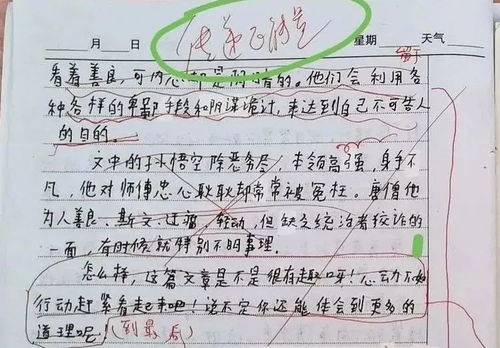 传递正能量
月 日 星期 天气
看着善良，可内心却是阴暗的。他们会利用各
种各样的卑鄙手段和阴谋诡计，来达到自己不可告人
的目的。
文中的孙悟空除恶务尽，本领高强，身手不
凡，他对师傅忠心耿耿却常常被冤枉。唐僧他
为人善良、斯文、过 轻动，但缺乏统治者狡诈的
一面，有时候就特别不明事理。
怎么样，这篇文章是不是很有趣呀！心动不如
行动赶紧看起来吧！说不定你还能体会到更多的
道理呢！(到最后)